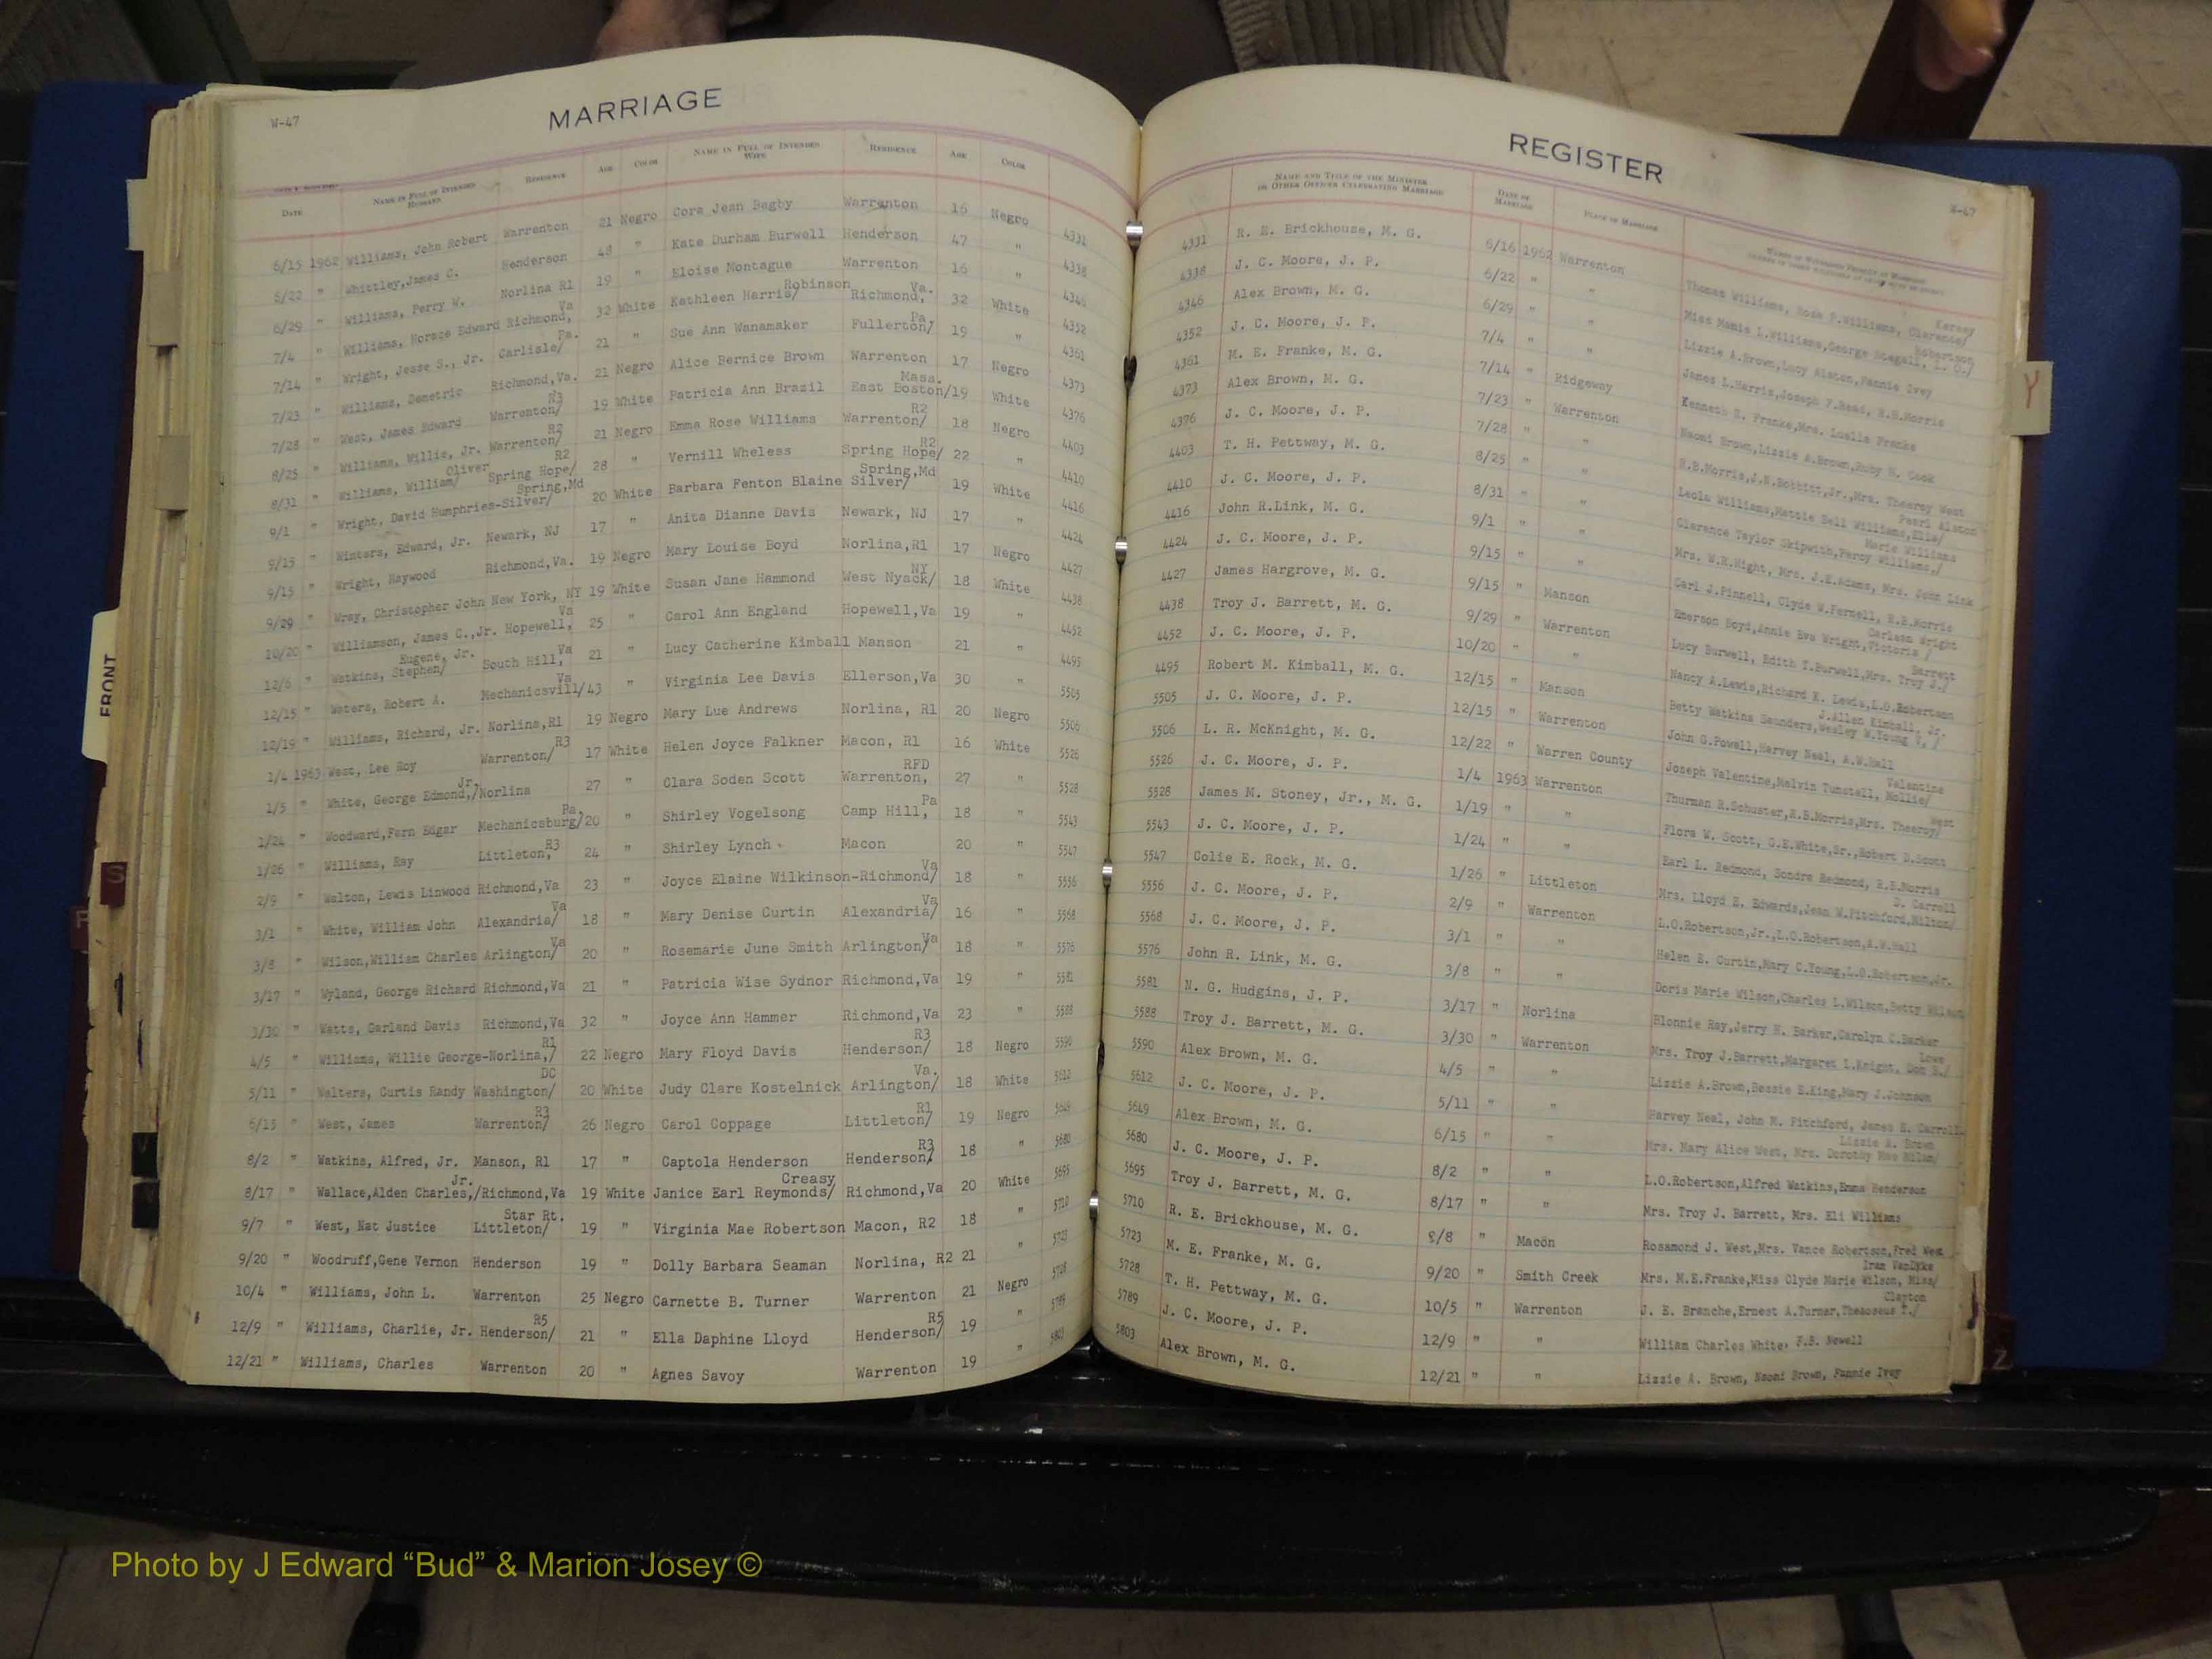 W-47
MARRIAGE
DATE NAME IN FULL OF INTENDED HUSBAND RESIDENCE AGE COLOR NAME IN FULL OF INTENDED WIFE RESIDENCE AGE COLOR
6/15 1962 Williams, John Robert Warrenton 21 Negro Cora Jean Bagby Warrenton 16 Negro 4331
6/22 " Whittley,James C. Henderson 48 " Kate Durham Burwell Henderson 47 " 4338
6/29 " Williams, Perry W. Norlina R1 19 " Eloise Montague Warrenton 16 " 4346
7/4 " Williams, Horace Edward Richmond, Va 32 White Kathleen Harris/ Robinson Richmond, Va. 32 White 4352
7/14 " Wright, Jesse S., Jr. Carlisle/ Pa. 21 " Sue Ann Wanamaker Fullerton/ Pa. 19 " 4361
7/23 " Williams, Demetric Richmond,Va. 21 Negro Alice Bernice Brown Warrenton 17 Negro 4373
7/28 " West, James Edward Warrenton/ R3 19 White Patricia Ann Brazil East Boston/ Mass. 19 White 4376
8/25 " Williams, Willie, Jr. Warrenton/ R2 21 Negro Emma Rose Williams Warrenton/ R2 18 Negro 4403
8/31 " Williams, William/ Oliver Spring Hope/ R2 28 " Vernill Wheless Spring Hope/ R2 22 " 4410
9/1 " Wright, David Humphries-Silver/ Spring,Md 20 White Barbara Fenton Blaine Silver/ Spring,Md 19 White 4416
9/15 " Winters, Edward, Jr. Newark, NJ 17 " Anita Dianne Davis Newark, NJ 17 " 4424
9/15 " Wright, Haywood Richmond,Va. 19 Negro Mary Louise Boyd Norlina,R1 17 Negro 4427
9/29 " Wray, Christopher John New York, NY 19 White Susan Jane Hammond West Nyack/ NY 18 White 4438
10/20 " Williamson, James C.,Jr. Hopewell, Va 25 " Carol Ann England Hopewell,Va 19 " 4452
12/6 " Watkins, Stephen/ Eugene, Jr. South Hill, Va 21 " Lucy Catherine Kimball Manson 21 " 4495
12/15 " Waters, Robert A. Mechanicsvill/ Va 43 " Virginia Lee Davis Ellerson,Va 30 " 5505
12/19 " Williams, Richard, Jr. Norlina,R1 19 Negro Mary Lue Andrews Norlina, R1 20 Negro 5506
1/4 1963 West, Lee Roy Warrenton/ R3 17 White Helen Joyce Falkner Macon, R1 16 White 5526
1/5 " White, George Edmond,/ Jr. Norlina 27 " Clara Soden Scott Warrenton, RFD 27 " 5528
1/24 " Woodward,Fern Edgar Mechanicsburg/ Pa. 20 " Shirley Vogelsong Camp Hill, Pa 18 " 5543
1/26 " Williams, Ray Littleton, R3 24 " Shirley Lynch Macon 20 " 5547
2/9 " Walton, Lewis Linwood Richmond,Va 23 " Joyce Elaine Wilkinson-Richmond/ Va 18 " 5556
3/1 " White, William John Alexandria/ Va 18 " Mary Denise Curtin Alexandria/ Va 16 " 5568
3/8 " Wilson,William Charles Arlington/ Va 20 " Rosemarie June Smith Arlington/ Va 18 " 5576
3/17 " Wyland, George Richard Richmond,Va 21 " Patricia Wise Sydnor Richmond,Va 19 " 5581
3/30 " Watts, Garland Davis Richmond,Va 32 " Joyce Ann Hammer Richmond,Va 23 " 5588
4/5 " Williams, Willie George-Norlina,/ R1 22 Negro Mary Floyd Davis Henderson/ R3 18 Negro 5590
5/11 " Walters, Curtis Randy Washington/ DC 20 White Judy Clare Kostelnick Arlington/ Va. 18 White 5612
6/15 " West, James Warrenton/ R3 26 Negro Carol Coppage Littleton/ R1 19 Negro 5649
8/2 " Watkins, Alfred, Jr. Manson, R1 17 " Captola Henderson Henderson/ R3 18 " 5680
8/17 " Wallace,Alden Charles,/ Jr. Richmond,Va 19 White Janice Earl Reymonds/ Creasy Richmond,Va 20 White 5695
9/7 " West, Nat Justice Littleton/ Star Rt. 19 " Virginia Mae Robertson Macon, R2 18 " 5710
9/20 " Woodruff,Gene Vernon Henderson 19 " Dolly Barbara Seaman Norlina, R2 21 " 5723
10/4 " Williams, John L. Warrenton 25 Negro Carnette B. Turner Warrenton 21 Negro 5728
12/9 " Williams, Charlie, Jr. Henderson/ R5 21 " Ella Daphine Lloyd Henderson/ R5 19 " 5789
12/21 " Williams, Charles Warrenton 20 " Agnes Savoy Warrenton 19 " 5803
REGISTER
W-47
NAME AND TITLE OF THE MINISTER OR OTHER OFFICER CELEBRATING MARRIAGE DATE OF MARRIAGE PLACE OF MARRIAGE
4331 R. E. Brickhouse, M. G. 6/16 1962 Warrenton Thomas Williams, Rosa P.Williams, Clarence/ Kersey
4338 J. C. Moore, J. P. 6/22 " " Miss Mamie L.Williams,George Stegall, L. O./ Robertson
4346 Alex Brown, M. G. 6/29 " " Lizzie A.Brown,Lucy Alston,Fannie Ivey
4352 J. C. Moore, J. P. 7/4 " " James L.Harris,Joseph F.Read, R.B.Morris
4361 M. E. Franke, M. G. 7/14 " Ridgeway Kenneth R. Franke,Mrs. Luelia Franke
4373 Alex Brown, M. G. 7/23 " Warrenton Naomi Brown,Lizzie A.Brown,Ruby H. Cook
4376 J. C. Moore, J. P. 7/28 " " R.B.Morris,J.E.Bobbitt,Jr.,Mrs. Theeroy West
4403 T. H. Pettway, M. G. 8/25 " " Leola Williams,Mattie Bell Williams,Ella/ Pearl Alston
4410 J. C. Moore, J. P. 8/31 " " Clarence Taylor Skipwith,Percy Williams,/ Marie Williams
4416 John R.Link, M. G. 9/1 " " Mrs. W.R.Hight, Mrs. J.E.Adams, Mrs. John Link
4424 J. C. Moore, J. P. 9/15 " " Carl J.Pinnell, Clyde W.Fernell, R.B.Morris
4427 James Hargrove, M. G. 9/15 " Manson Emerson Boyd,Annie Eva Wright,Victoria / Carleen Wright
4438 Troy J. Barrett, M. G. 9/29 " Warrenton Lucy Burwell, Edith T.Burwell,Mrs. Troy J./ Barrett
4452 J. C. Moore, J. P. 10/20 " " Nancy A.Lewis,Richard K. Lewis,L.O.Robertson
4495 Robert M. Kimball, M. G. 12/15 " Manson Betty Watkins Saunders,Wesley W.Young J.Allen Kimball, Jr.
5505 J. C. Moore, J. P. 12/15 " Warrenton John G.Powell,Harvey Neal, A.W.Hall
5506 L. R. McKnight, M. G. 12/22 " Warren County Joseph Valentine,Melvin Tunstall, Mollie/ Valentine
5526 J. C. Moore, J. P. 1/4 1963 Warrenton Thurman R.Schuster,R.B.Morris,Mrs. Theeroy/ West
5528 James M. Stoney, Jr., M. G. 1/19 " " Flora W. Scott, G.E.White,Sr.,Robert D.Scott
5543 J. C. Moore, J. P. 1/24 " " Earl L. Redmond, Sondra Redmond, R.B.Morris
5547 Colie E. Rock, M. G. 1/26 " Littleton Mrs. Lloyd E. Edwards,Jean W.Pitchford,Milton/ D. Carroll
5556 J. C. Moore, J. P. 2/9 " Warrenton L.O.Robertson,Jr.,L.O.Robertson,A.W.Hall
5568 J. C. Moore, J. P. 3/1 " " Helen B. Curtin,Mary C.Young,L.O.Robertson,Jr.
5576 John R. Link, M. G. 3/8 " " Doris Marie Wilson,Charles L.Wilson,Betty Wilson
5581 N. G. Hudgins, J. P. 3/17 " Norlina Blonnie Ray,Jerry H. Barker,Carolyn C.Barker
5588 Troy J. Barrett, M. G. 3/30 " Warrenton Mrs. Troy J.Barrett,Margaret L.Knight, Don E./ Lowe
5590 Alex Brown, M. G. 4/5 " " Lizzie A.Brown,Bessie E.King,Mary J.Johnson
5612 J. C. Moore, J. P. 5/11 " " Harvey Neal, John M. Pitchford, James H. Carroll
5649 Alex Brown, M. G. 6/15 " " Mrs. Mary Alice West, Mrs. Dorothy Mae Milam/ Lizzie A. Brown
5680 J. C. Moore, J. P. 8/2 " " L.O.Robertson,Alfred Watkins,Emma Henderson
5695 Troy J. Barrett, M. G. 8/17 " " Mrs. Troy J. Barrett, Mrs. Eli Williams
5710 R. E. Brickhouse, M. G. 9/8 " Macon Rosamond J. West,Mrs. Vance Robertson,Fred West
5723 M. E. Franke, M. G. 9/20 " Smith Creek Mrs. M.E.Franke,Miss Clyde Marie Wilson, Miss/ Iran VanDyke
5728 T. H. Pettway, M. G. 10/5 " Warrenton J. E. Branche,Ernest A.Turner,Theaoseus T./ Clayton
5789 J. C. Moore, J. P. 12/9 " " William Charles White, F.S. Newell
5803 Alex Brown, M. G. 12/21 " " Lizzie A. Brown, Naomi Brown, Fannie Ivey
FRONT
S
Y
Z
Photo by J Edward “Bud” & Marion Josey ©